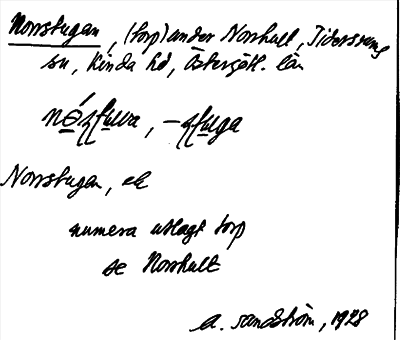 Norrstugan, (torp) under Norrhult, Tidersrums
sn, Kinda hd, Östergötl. län
Norrstugan, ek
numera utlagt torp
se Norrhult
A. Sandström, 1928